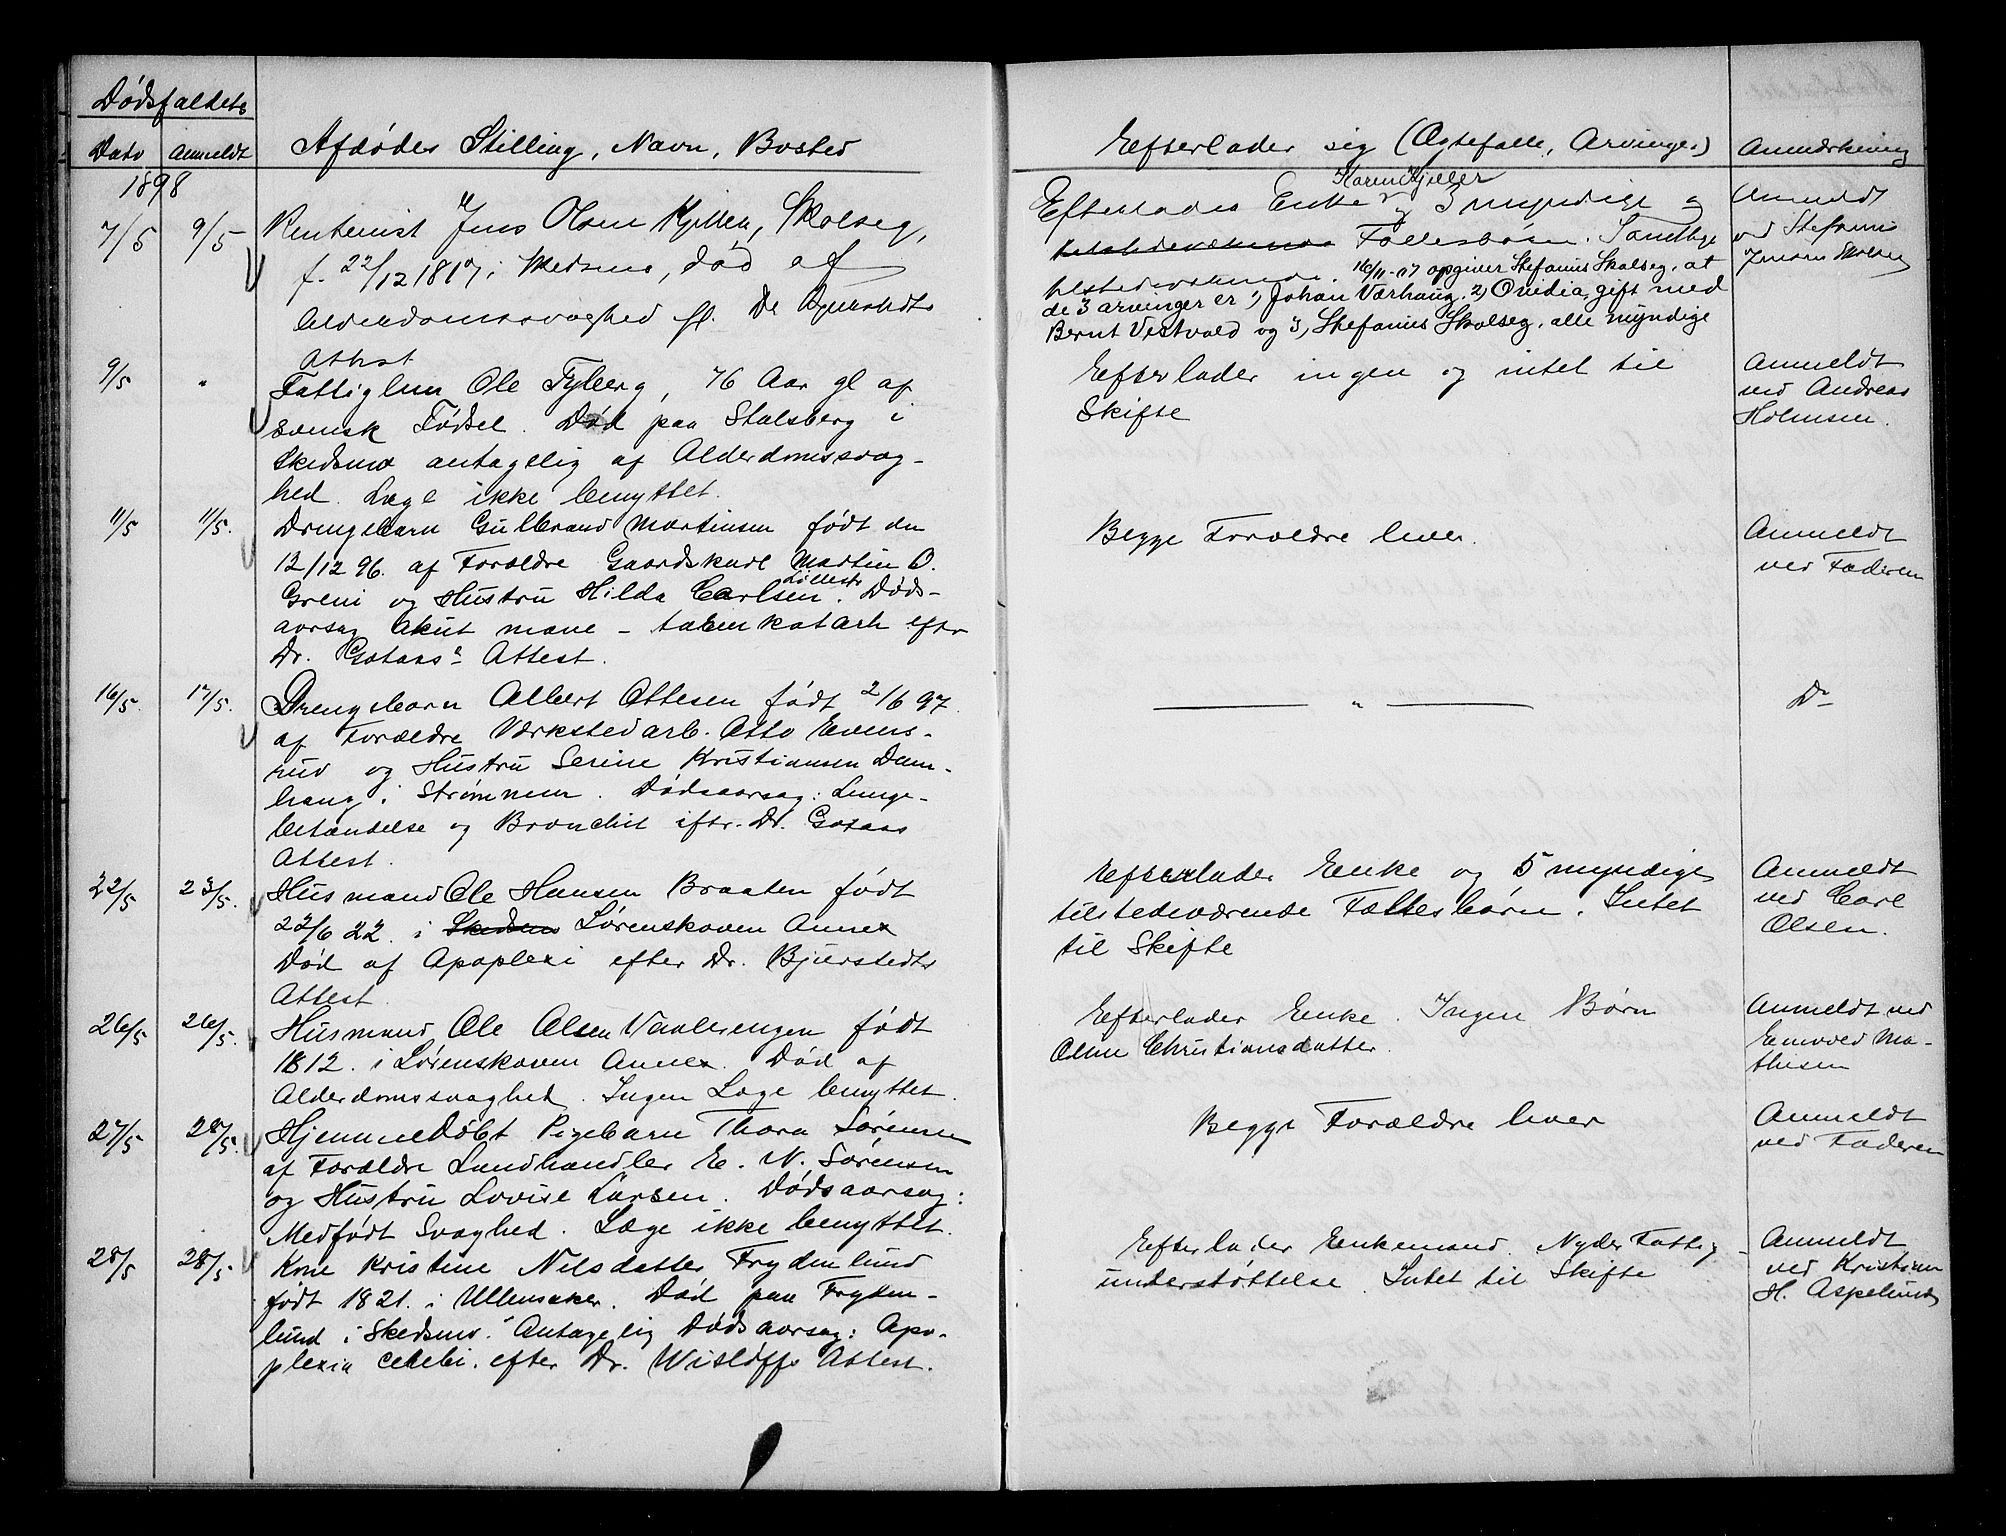 Dødsfaldets
Dato Anmeldt Afdødes Stilling, Navn, Bosted
1898
7/5 9/5 Rentenist Jens Olsen Kjeller, Skolseg,
f. 22/12 1817 i Skedsmo, død af
Alderdomssvaghed efl. Dr Bjurstedts
Attest
9/5 " Fattiglem Ole Tyberg, 76 Aar gl af
svensk Fødsel. Død paa Stalsberg i
Skedsmo antagelig af Alderdomssvag-
hed. Læge ikke benyttet.
11/5 11/5. Drengebarn Gulbrand Martinsen født den
12/12 96. af Forældre Gaardskarl Martin O.
Greni og Hustru Hilda Carlsen Lillestr. Døds-
aarsag Akut mave - tarmkatarh eftr
Dr. Gotaas' Attest.
16/5. 17/5. Drengebarn Albert Ottesen født 2/6 97.
af Forældre Værkstedarb. Otto Evens-
rud og Hustru Serine Kristiansen Dam-
haug i Strømmen. Dødsaarsag: Lunge-
betændelse og Bronchit eftr. Dr. Gotaas
Attest.
22/5 23/5. Husmand Ole Hansen Braaten født
22/6 22. i Skedsmo Lørenskoven Annex
Død af Apoplexi efter Dr. Bjurstedts
Attest.
26/5 26/5. Husmand Ole Olsen Vaalerengen født
1812. i Lørenskoven Annex. Død af
Alderdomssvaghed. Ingen Læge benyttet.
27/5 28/5. Hjemmedøbt Pigebarn Thora Sørensen
af Forældre Landhandler E. N. Sørensen
og Hustru Lovise Larsen. Dødsaarsag:
Medfødt Svaghed. Læge ikke benyttet.
28/5 28/5 Kone Kristine Nilsdatter Frydenlund
født 1821. i Ullensaker. Død paa Fryden-
lund i Skedsmo. Antagelig Dødsaarsag: Apo-
plexia celebi. efter Dr. Wisløffs Attest.
Efterlader sig (Ægtefælle, Arvinger) Anmærkning
Karen Kjeller
Efterlades Enke og 3 myndige og
tilstedeværende Fællesbørn. Samtlige
tilstedeværende. 16/11-17 opgiver Stefanus Skolseg, at
de 3 arvinger er 1) Johan Varhaug. 2) Ovidia, gift med
Bernt Vestvold og 3) Stefanus Skolseg, alle myndige
Anmeldt
ved Stefanus
Efterlader ingen og intet til
Skifte
Anmeldt
ved Andreas
Holmsen.
Begge Forældre lever.
Anmeldt
ved Faderen
— " — Do
Efterlader Enke og 5 myndige
tilstedeværende Fællesbørn. Intet
til Skifte
Anmeldt
ved Carl
Olsen.
Efterlader Enke. Ingen Børn
Oline Christiansdatter.
Anmeldt ved
Enevold Ma-
thisen
Begge Forældre lever
Anmeldt
ved Faderen
Efterlader Enkemand. Nyder Fattig-
understøttelse. Intet til Skifte
Anmeldt
ved Kristian
H. Aspelund